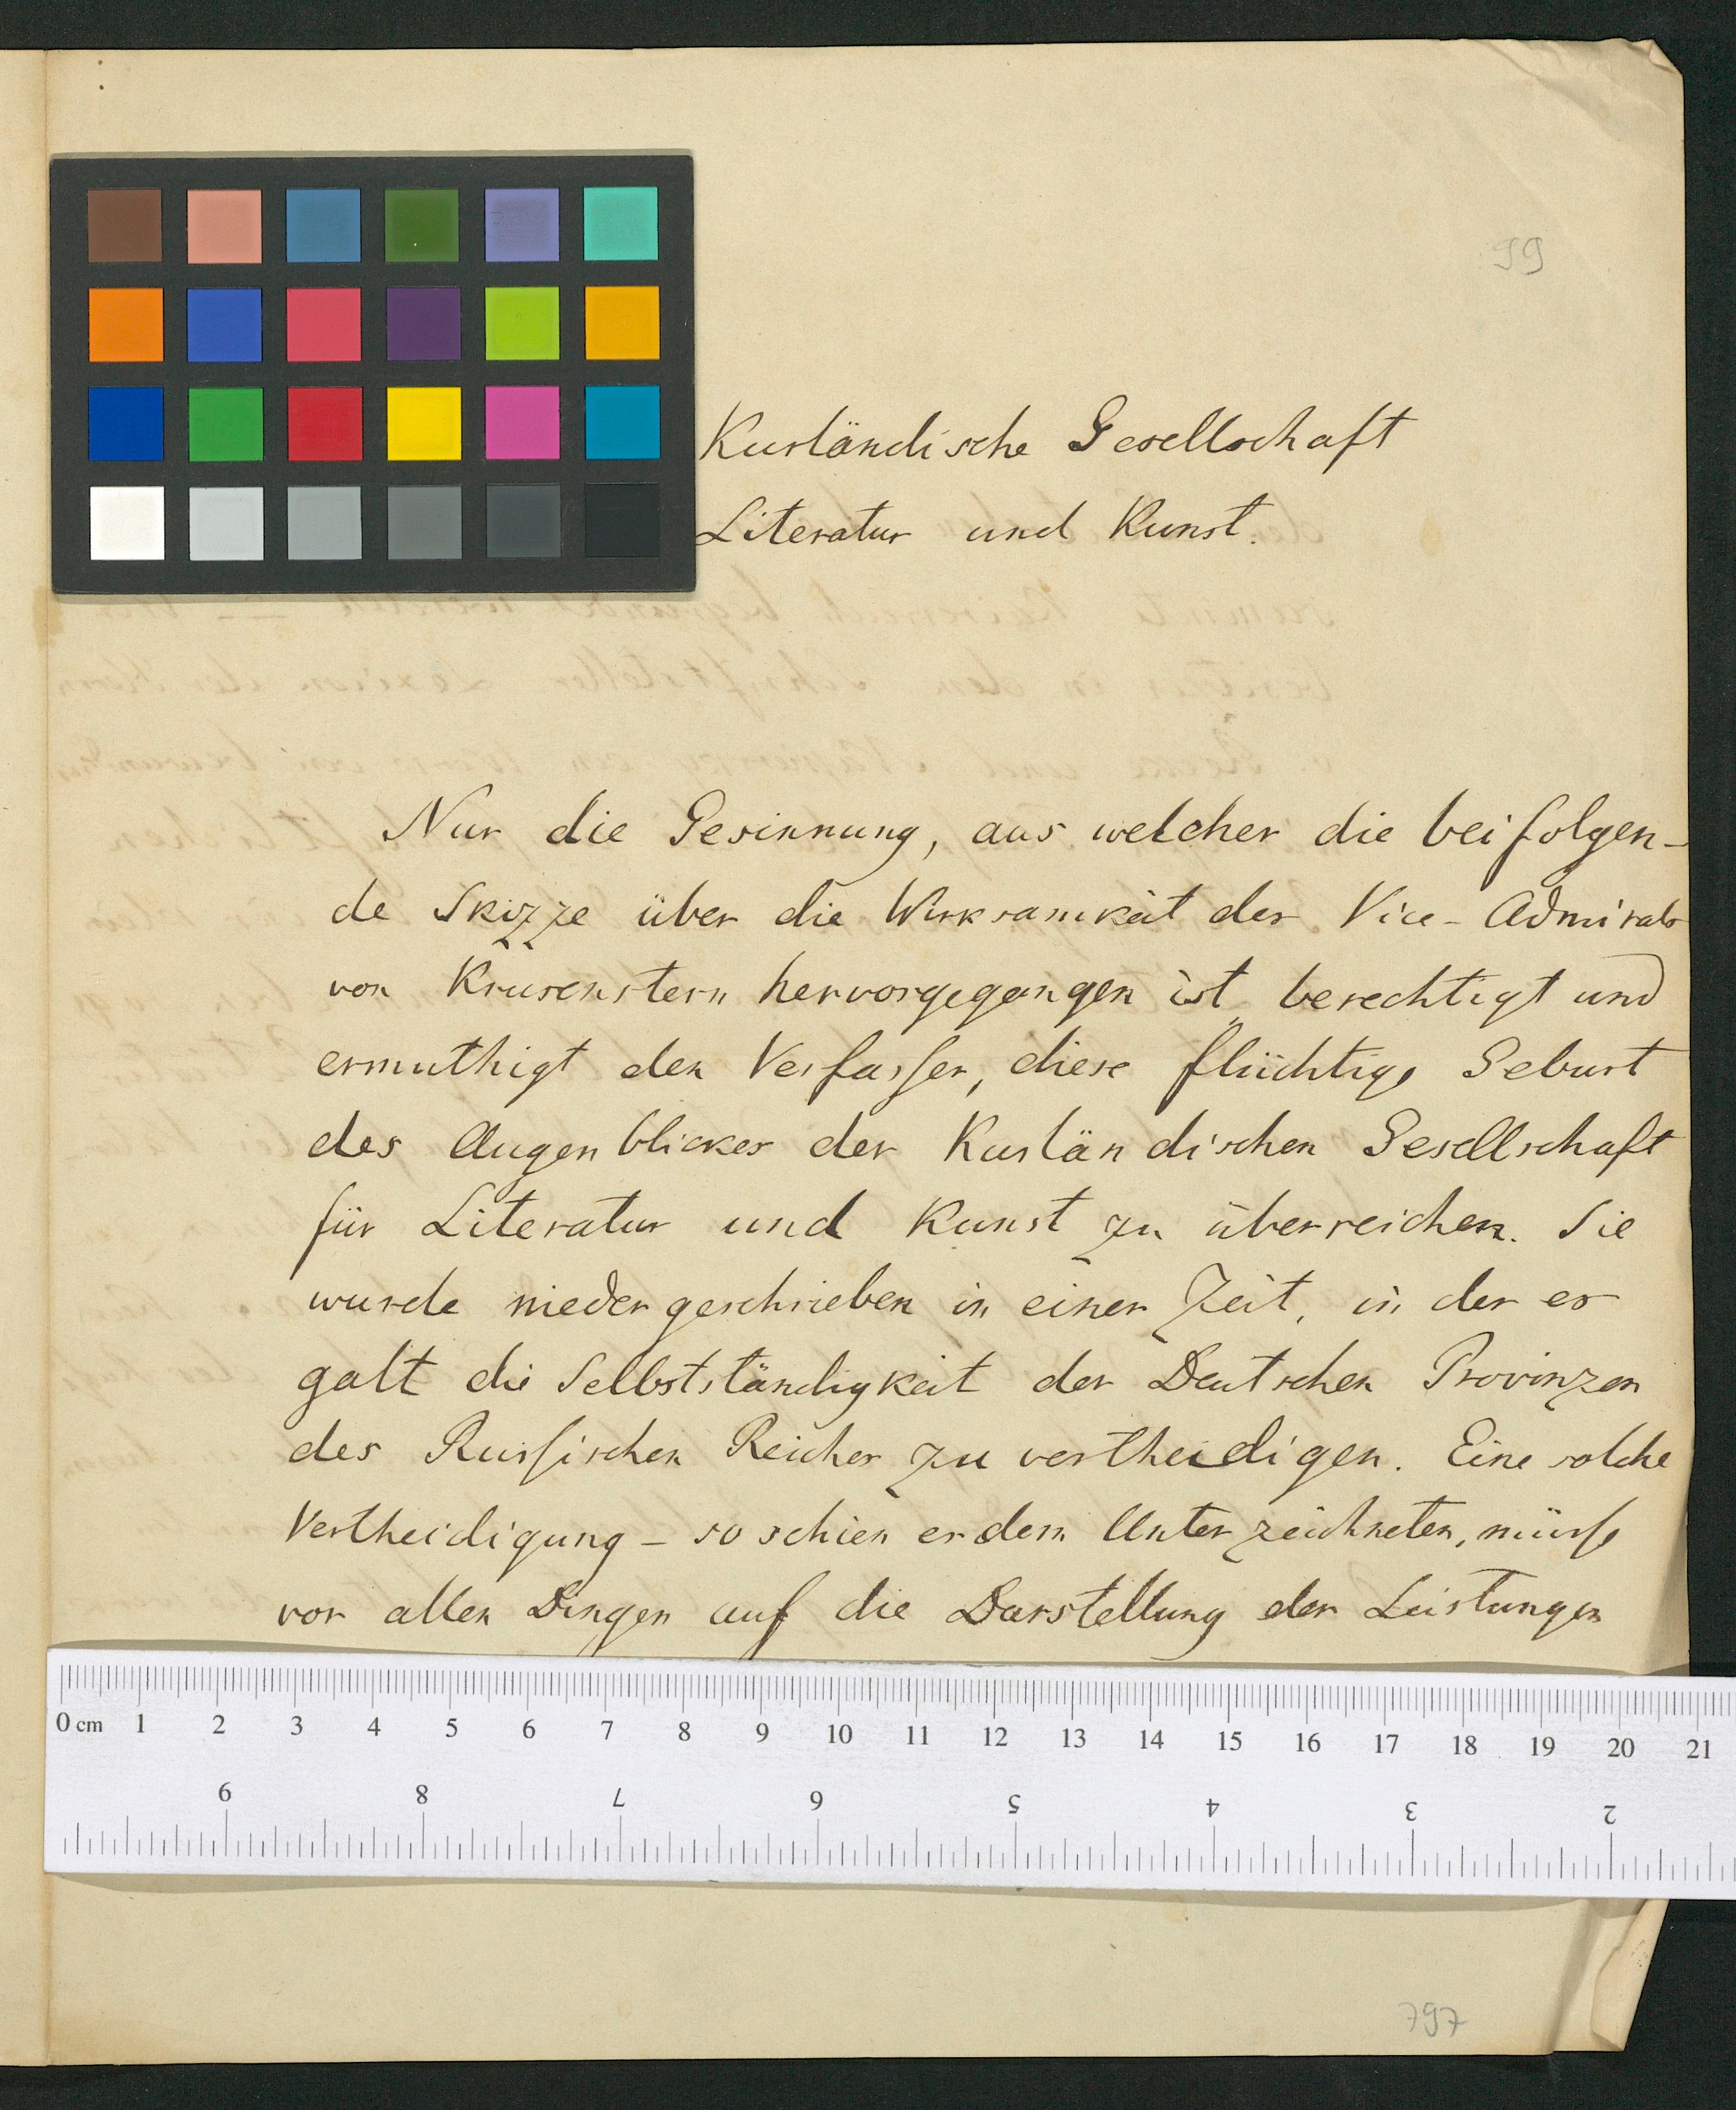 99
Kurländische Gesellschaft
Literatur und Kunst.
Nur die Gesinnung, aus welcher die beifolgen-
de Skizze über die Wirksamkeit des Vice-Admirals
von Krusenstern hervorgegangen ist berechtigt und
ermuthigt den Verfasser, diese flüchtige Geburt
des Augenblickes der Kurländischen Gesellschaft
für Literatur und Kunst zu überreichen. Sie
wurde niedergeschrieben in einer Zeit, in der es
galt die Selbstständigkeit der Deutschen Provinzen
des Russischen Reiches zu vertheidigen. Eine solche
Vertheidigung – so schien es dem Unterzeichneten, müsse
vor allen Dingen auf die Darstellung der Leistungen
0 cm 1 2 3 4 5 6 7 8 9 10 11 12 13 14 15 16 17 18 19 20 21
9 8 7 6 5 4 3 2
797